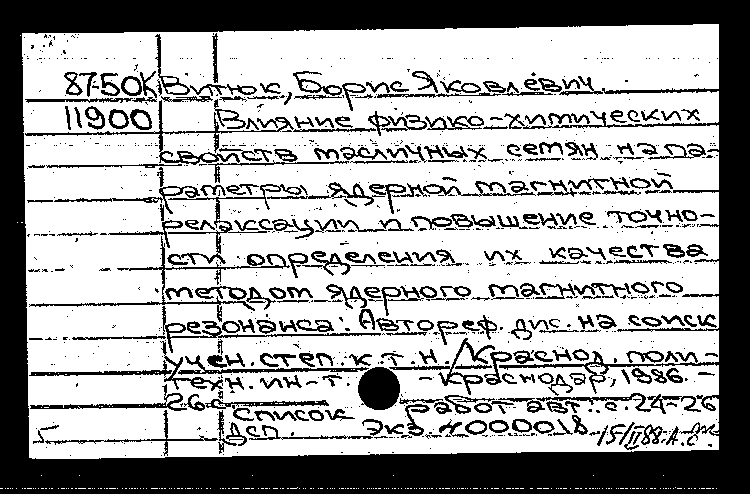 87-50К Витюк, Борис Яковлевич.
11900 Влияние физико-химических
свойств масличных семян на па-
раметры ядерной магнитной
релаксации и повышение точно-
сти определения их качества
методом ядерного магнитного
резонанса: Автореф. дис. на соиск
учен. степ. к.т.н. /Краснод. поли-
техн. ин-т. - Краснодар, 1986. -
26 с
Список работ авт.: с. 24-26
ДСП. Экз. N000018 15/II 88